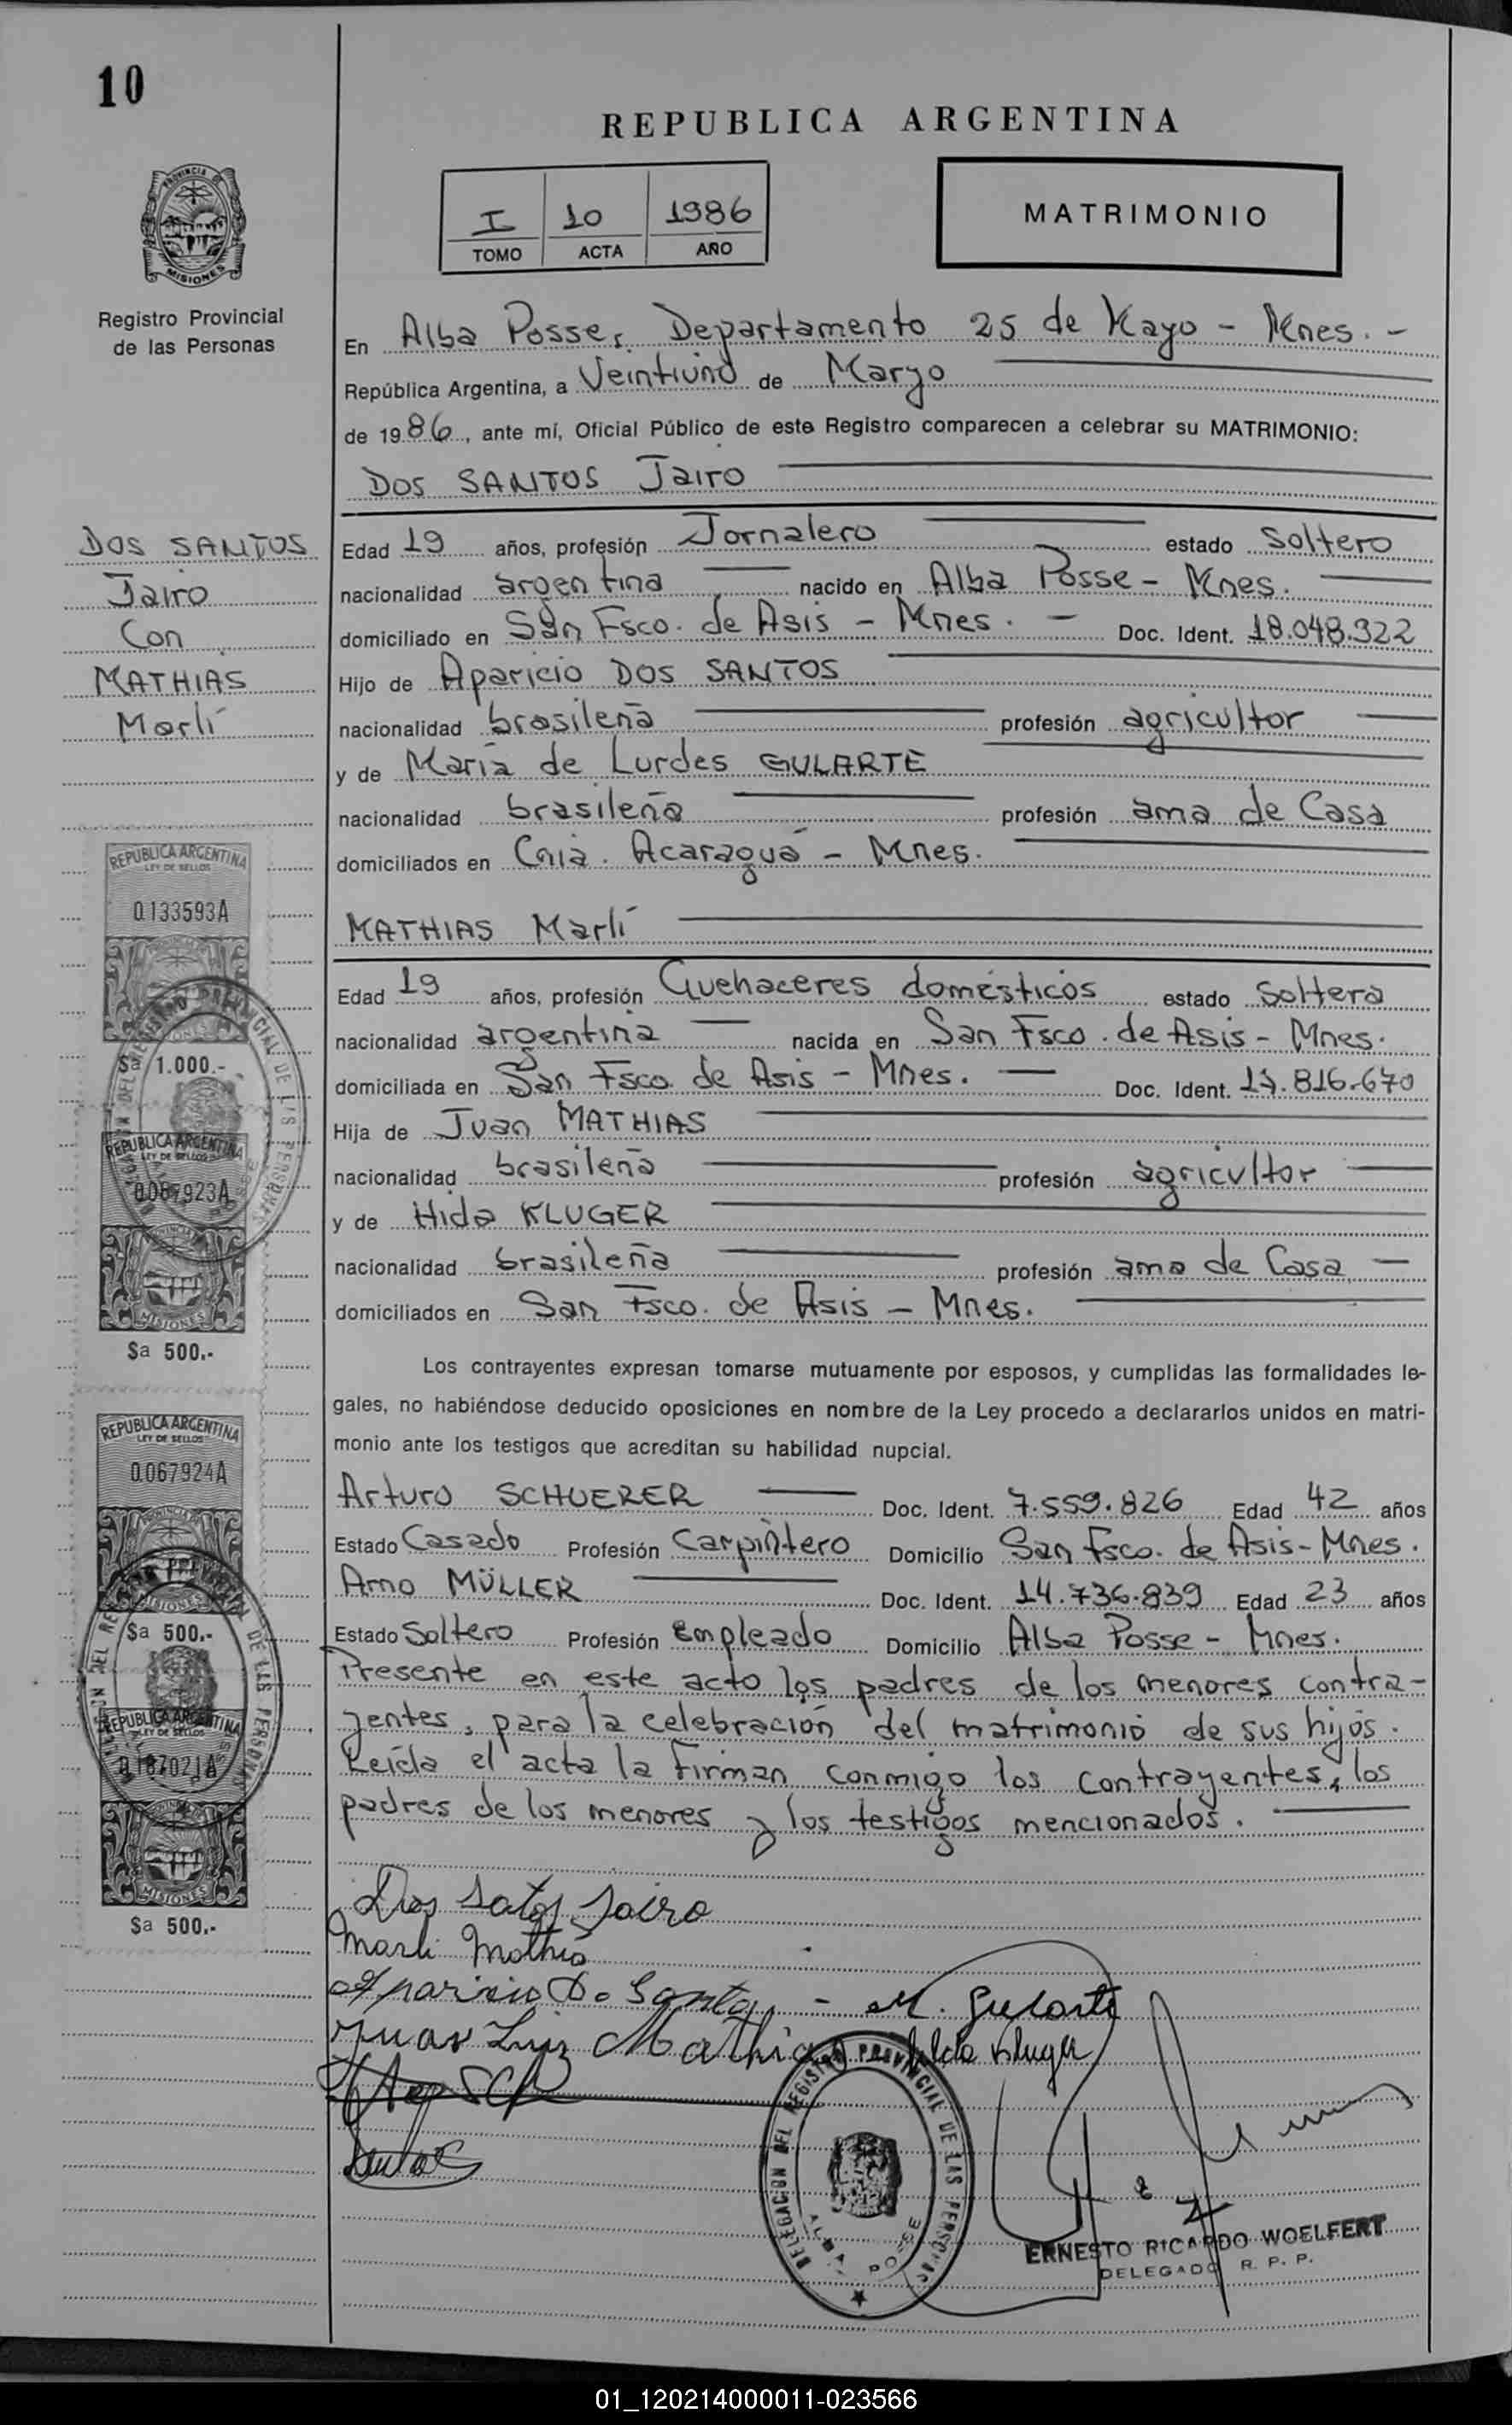 10
REPUBLICA ARGENTINA
I 10 1986
TOMO ACTA AÑO
MATRIMONIO
PROVINCIA
MISIONES
Registro Provincial
de las Personas
En Alba Posse, Departamento 25 de Mayo - Mnes. -
República Argentina, a Veintiuno de Marzo
de 1986, ante mí, Oficial Público de este Registro comparecen a celebrar su MATRIMONIO:
DOS SANTOS Jairo
DOS SANTOS
Jairo
Con
MATHIAS
Marlí
Edad 19 años, profesión Jornalero estado Soltero
nacionalidad argentina nacido en Alba Posse - Mnes.
domiciliado en San Fsco. de Asis - Mnes. - Doc. Ident. 18.048.322
Hijo de Aparicio DOS SANTOS
nacionalidad brasileña profesión agricultor
y de María de Lurdes GULARTE
nacionalidad brasileña profesión ama de Casa
domiciliados en Cnia. Acaraguá - Mnes.
MATHIAS Marlí
Edad 19 años, profesión Quehaceres domésticos estado Soltera
nacionalidad argentina nacida en San Fsco. de Asis - Mnes.
domiciliada en San Fsco. de Asis - Mnes. Doc. Ident. 17.816.670
Hija de Juan MATHIAS
nacionalidad brasileña profesión agricultor
y de Hida KLUGER
nacionalidad brasileña profesión ama de Casa
domiciliados en San Fsco. de Asis - Mnes.
Los contrayentes expresan tomarse mutuamente por esposos, y cumplidas las formalidades le-
gales, no habiéndose deducido oposiciones en nombre de la Ley procedo a declararlos unidos en matri-
monio ante los testigos que acreditan su habilidad nupcial.
Arturo SCHUERER Doc. Ident. 7.559.826 Edad 42 años
Estado Casado Profesión Carpintero Domicilio San Fsco. de Asis - Mnes.
Arno MÜLLER Doc. Ident. 14.736.839 Edad 23 años
Estado Soltero Profesión Empleado Domicilio Alba Posse - Mnes.
Presente en este acto los padres de los menores contra-
yentes, para la celebración del matrimonio de sus hijos.
Leída el acta la firman conmigo los contrayentes, los
padres de los menores y los testigos mencionados.
REPUBLICA ARGENTINA
LEY DE SELLOS
0.133593A
$a 1.000.-
REPUBLICA ARGENTINA
LEY DE SELLOS
MISIONES
$a 500.-
REPUBLICA ARGENTINA
LEY DE SELLOS
0.067924A
MISIONES
$a 500.-
REPUBLICA ARGENTINA
LEY DE SELLOS
0.187021A
MISIONES
$a 500.-
Dos Satos Jairo
Marli Mathia
Aparicio D. Santos - M. Gularte
Juan Luiz Mathias Hilda Kluger
DELEGACION DEL REGISTRO PROVINCIAL DE LAS PERSONAS
ALBA POSSE
ERNESTO RICARDO WOELFERT
DELEGADO R. P. P.
01_120214000011-023566